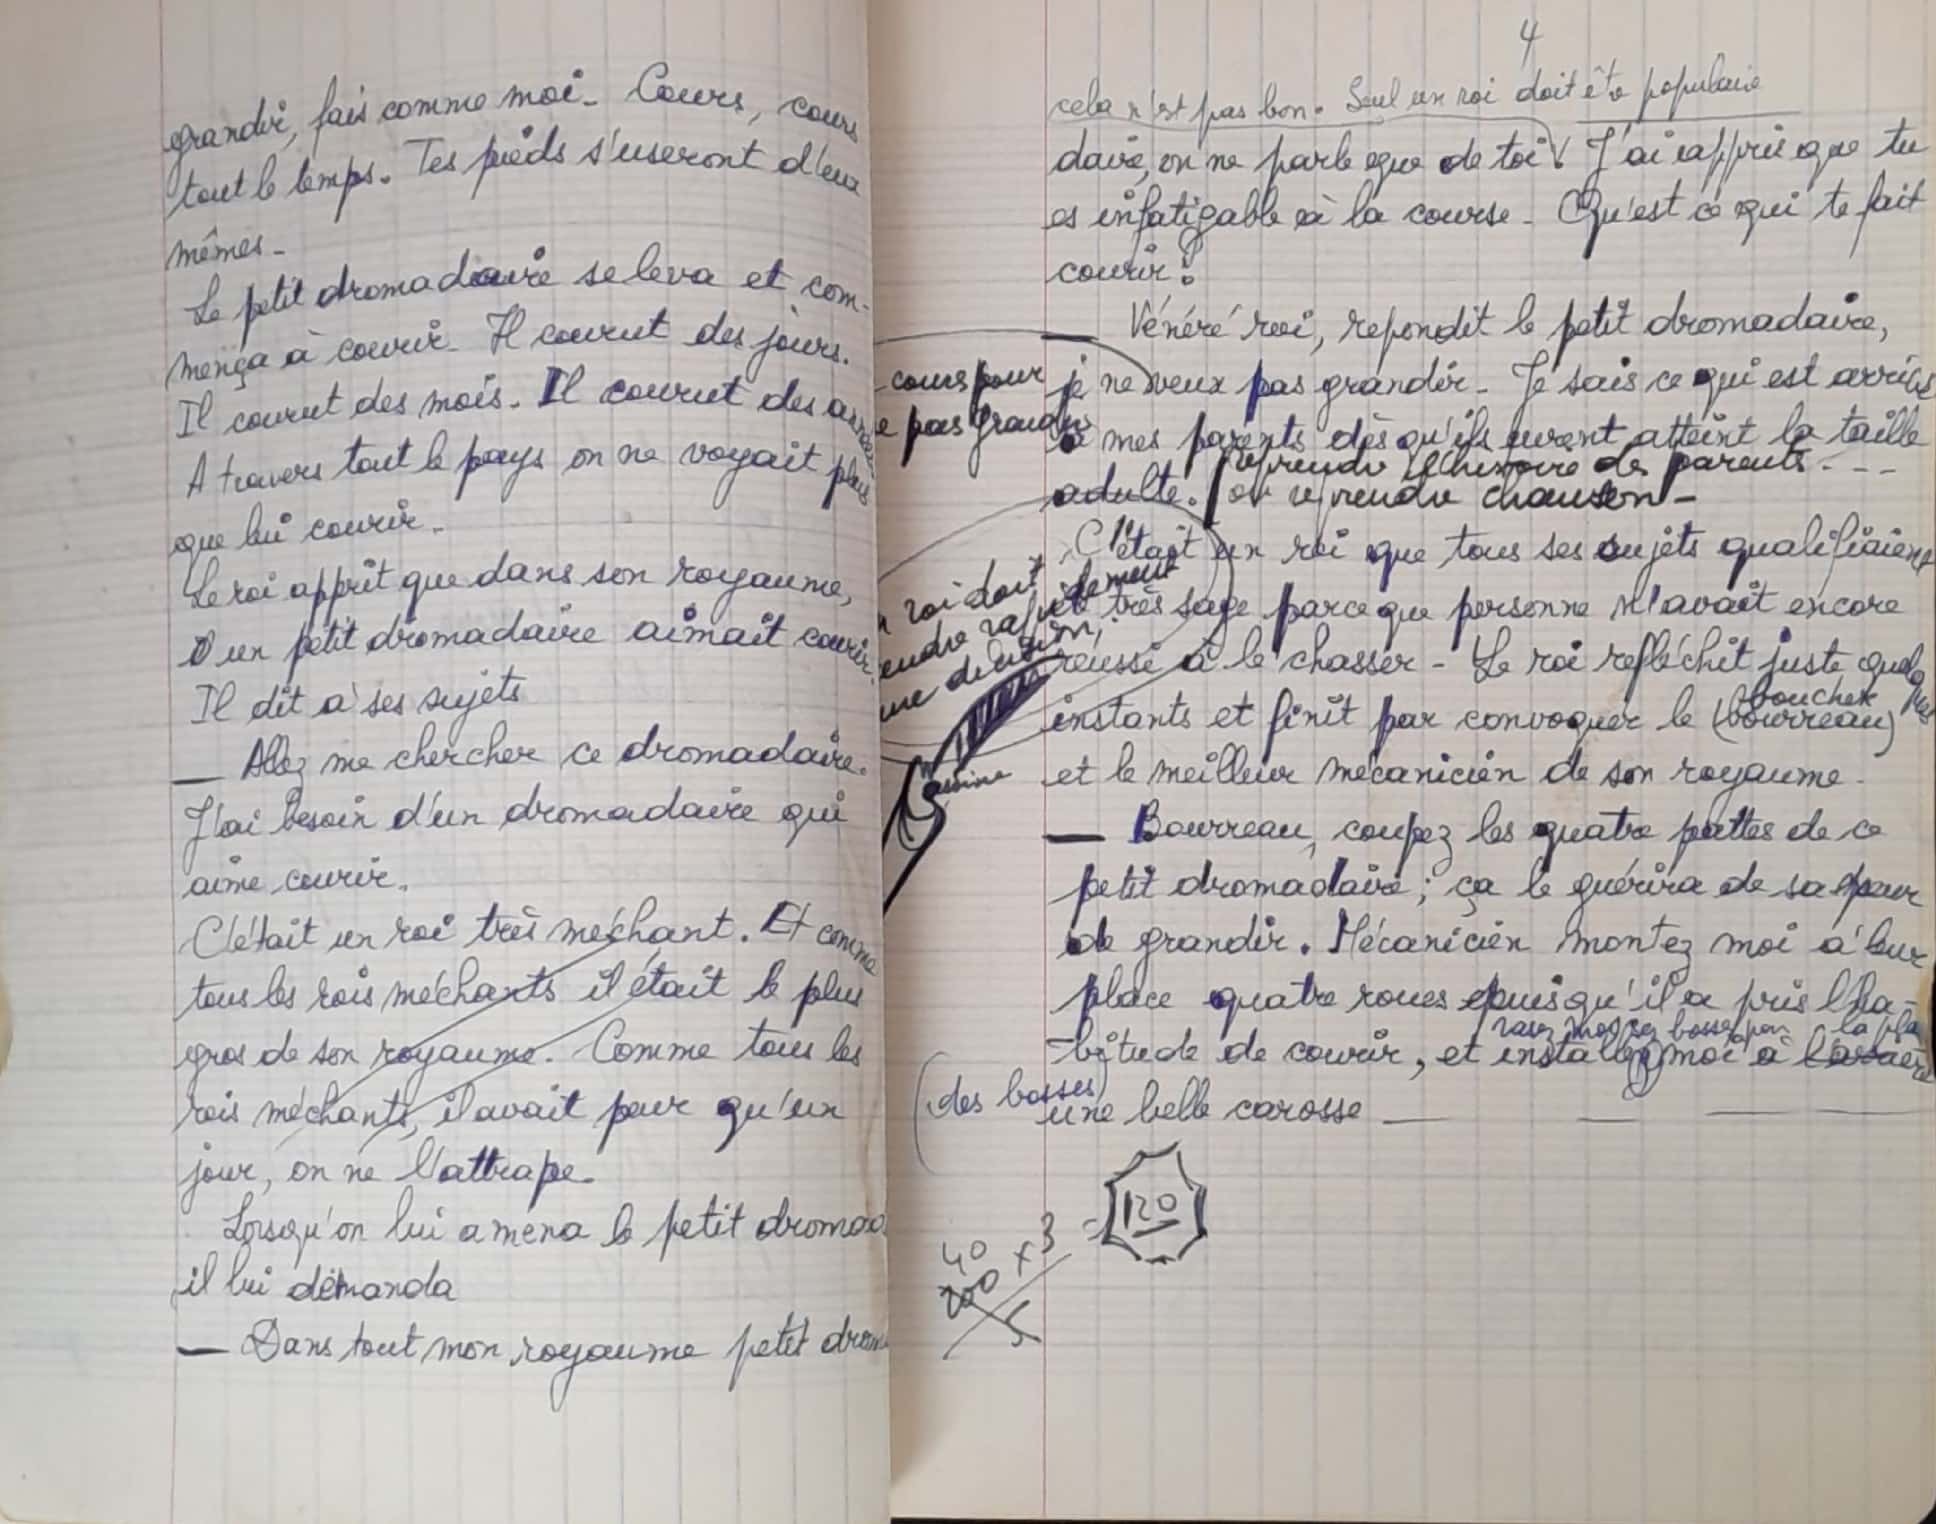 grandir, fais comme moi - Cours, cours
tout le temps. Tes pieds s'useront d'eux
mêmes -
Le petit dromadaire se leva et com-
mença à courir. Il courut des jours.
Il courut des mois. Il courut des années
A travers tout le pays on ne voyait plus
que lui courir -
Le roi apprit que dans son royaume,
un petit dromadaire aimait courir.
Il dit à ses sujets
— Allez me chercher ce dromadaire.
J'ai besoin d'un dromadaire qui
aime courir.
C'était un roi très méchant. Et comme
tous les rois méchants il était le plus
gros de son royaume. Comme tous les
rois méchants, il avait peur qu'un
jour, on ne l'attrape.
Lorsqu'on lui amena le petit dromad
il lui demanda
— Dans tout mon royaume petit drom
4
cela n'est pas bon. Seul un roi doit être populaire
daire, on ne parle que de toi ! J'ai appris que tu
es infatigable à la course - Qu'est ce qui te fait
courir ?
— Vénéré roi, repondit le petit dromadaire,
cours pour
je ne veux pas grandir - Je sais ce qui est arrivé
e pas grandir
à mes parents dès qu'ils eurent atteint la taille
reprendre l'histoire des parents - - -
adulte. ou reprendre chanson -
C'était un roi que tous ses sujets qualifiaient
roi doit
de très sage parce que personne n'avait encore
endre rapidement
réussi à le chasser - Le roi refléchit juste quelques
une décision,
instants et finit par convoquer le (bourreau)
boucher
et le meilleur mécanicien de son royaume -
— Bourreau, coupez les quatre pattes de ce
petit dromadaire ; ça le guérira de sa peur
de grandir. Mécanicien montez moi à leur
place quatre roues puisqu'il a pris l'ha-
rasez moi ses bosses la pla
-bitude de courir, et installez moi à
(des bosses)
une belle carosse — — —
40
200 x 3
5
= 120